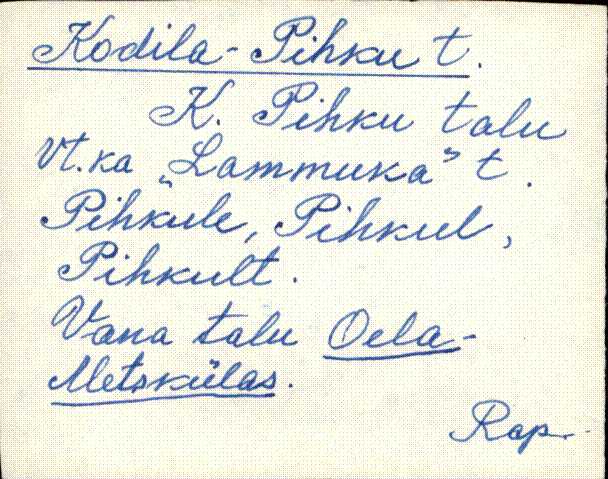 Kodila-Pihku t.
K. Pihku talu
Vt. ka „Lammuka” t.
Pihkule, Pihkul,
Pihkult.
Vana talu Oela-
Metskülas.
Rap.